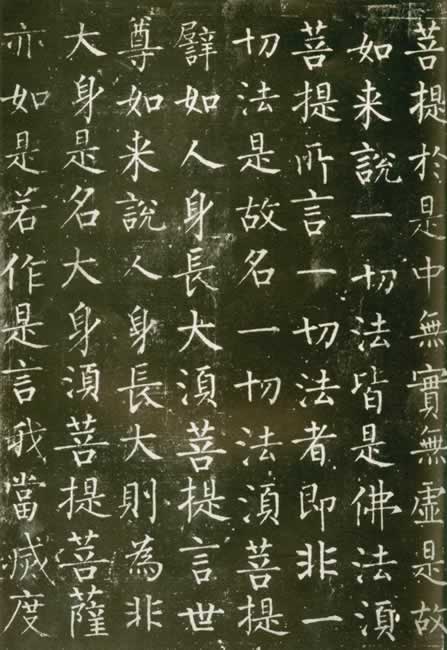 菩提於是中無實無虛是故
如来說一切法皆是佛法湏
菩提所言一切法者即非一
切法是故名一切法湏菩提
譬如人身長大湏菩提言世
尊如来說人身長大則為非
大身是名大身湏菩提菩薩
亦如是若作是言我當滅度